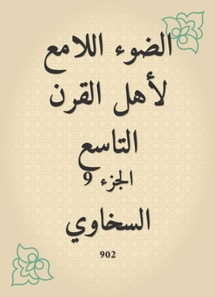 الضوء اللامع
لأهل القرن
التاسع
الجزء 9
السخاوي
902